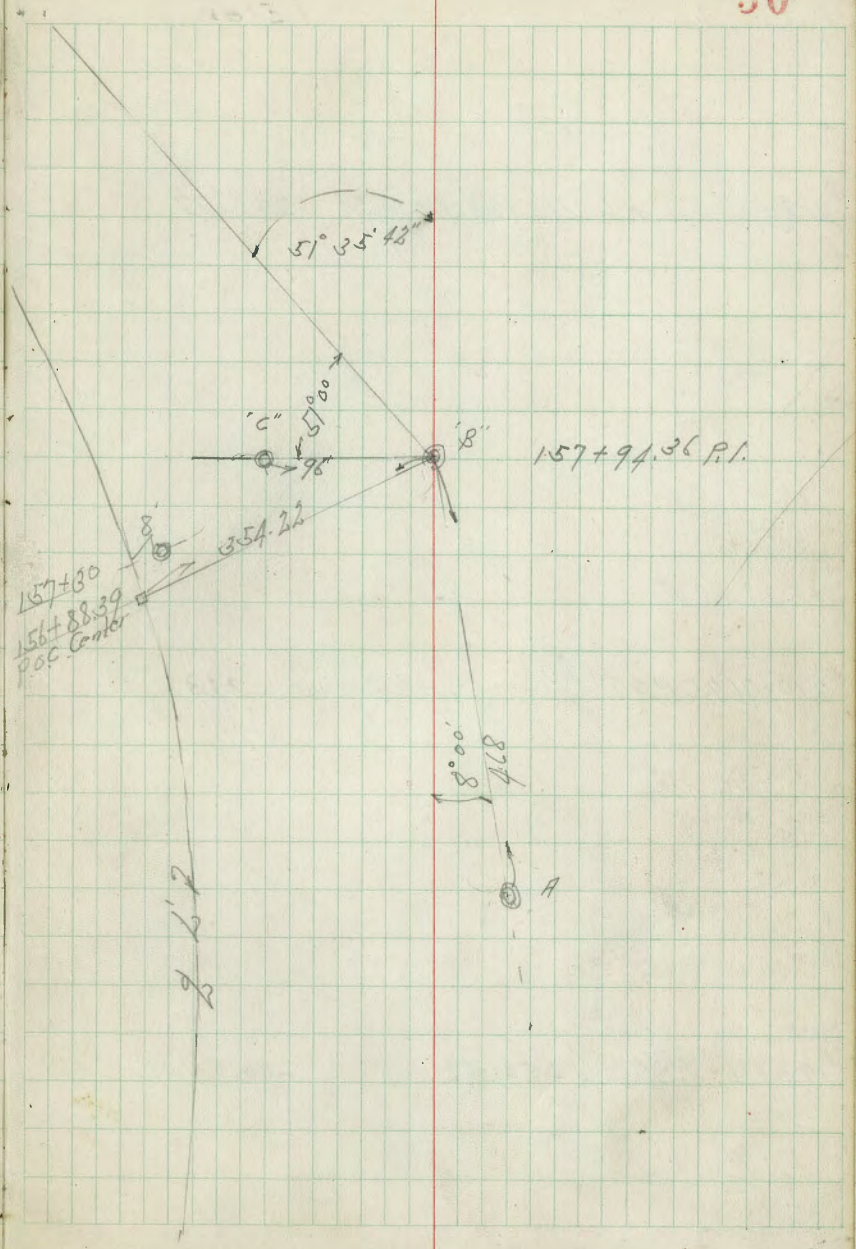 51° 35' 42"
51°00'
"C"
96'
"B"
157+94.36 P.I.
8'
354.22
157+30
156+88.39
P.O.C. Center
8°00'
468
A